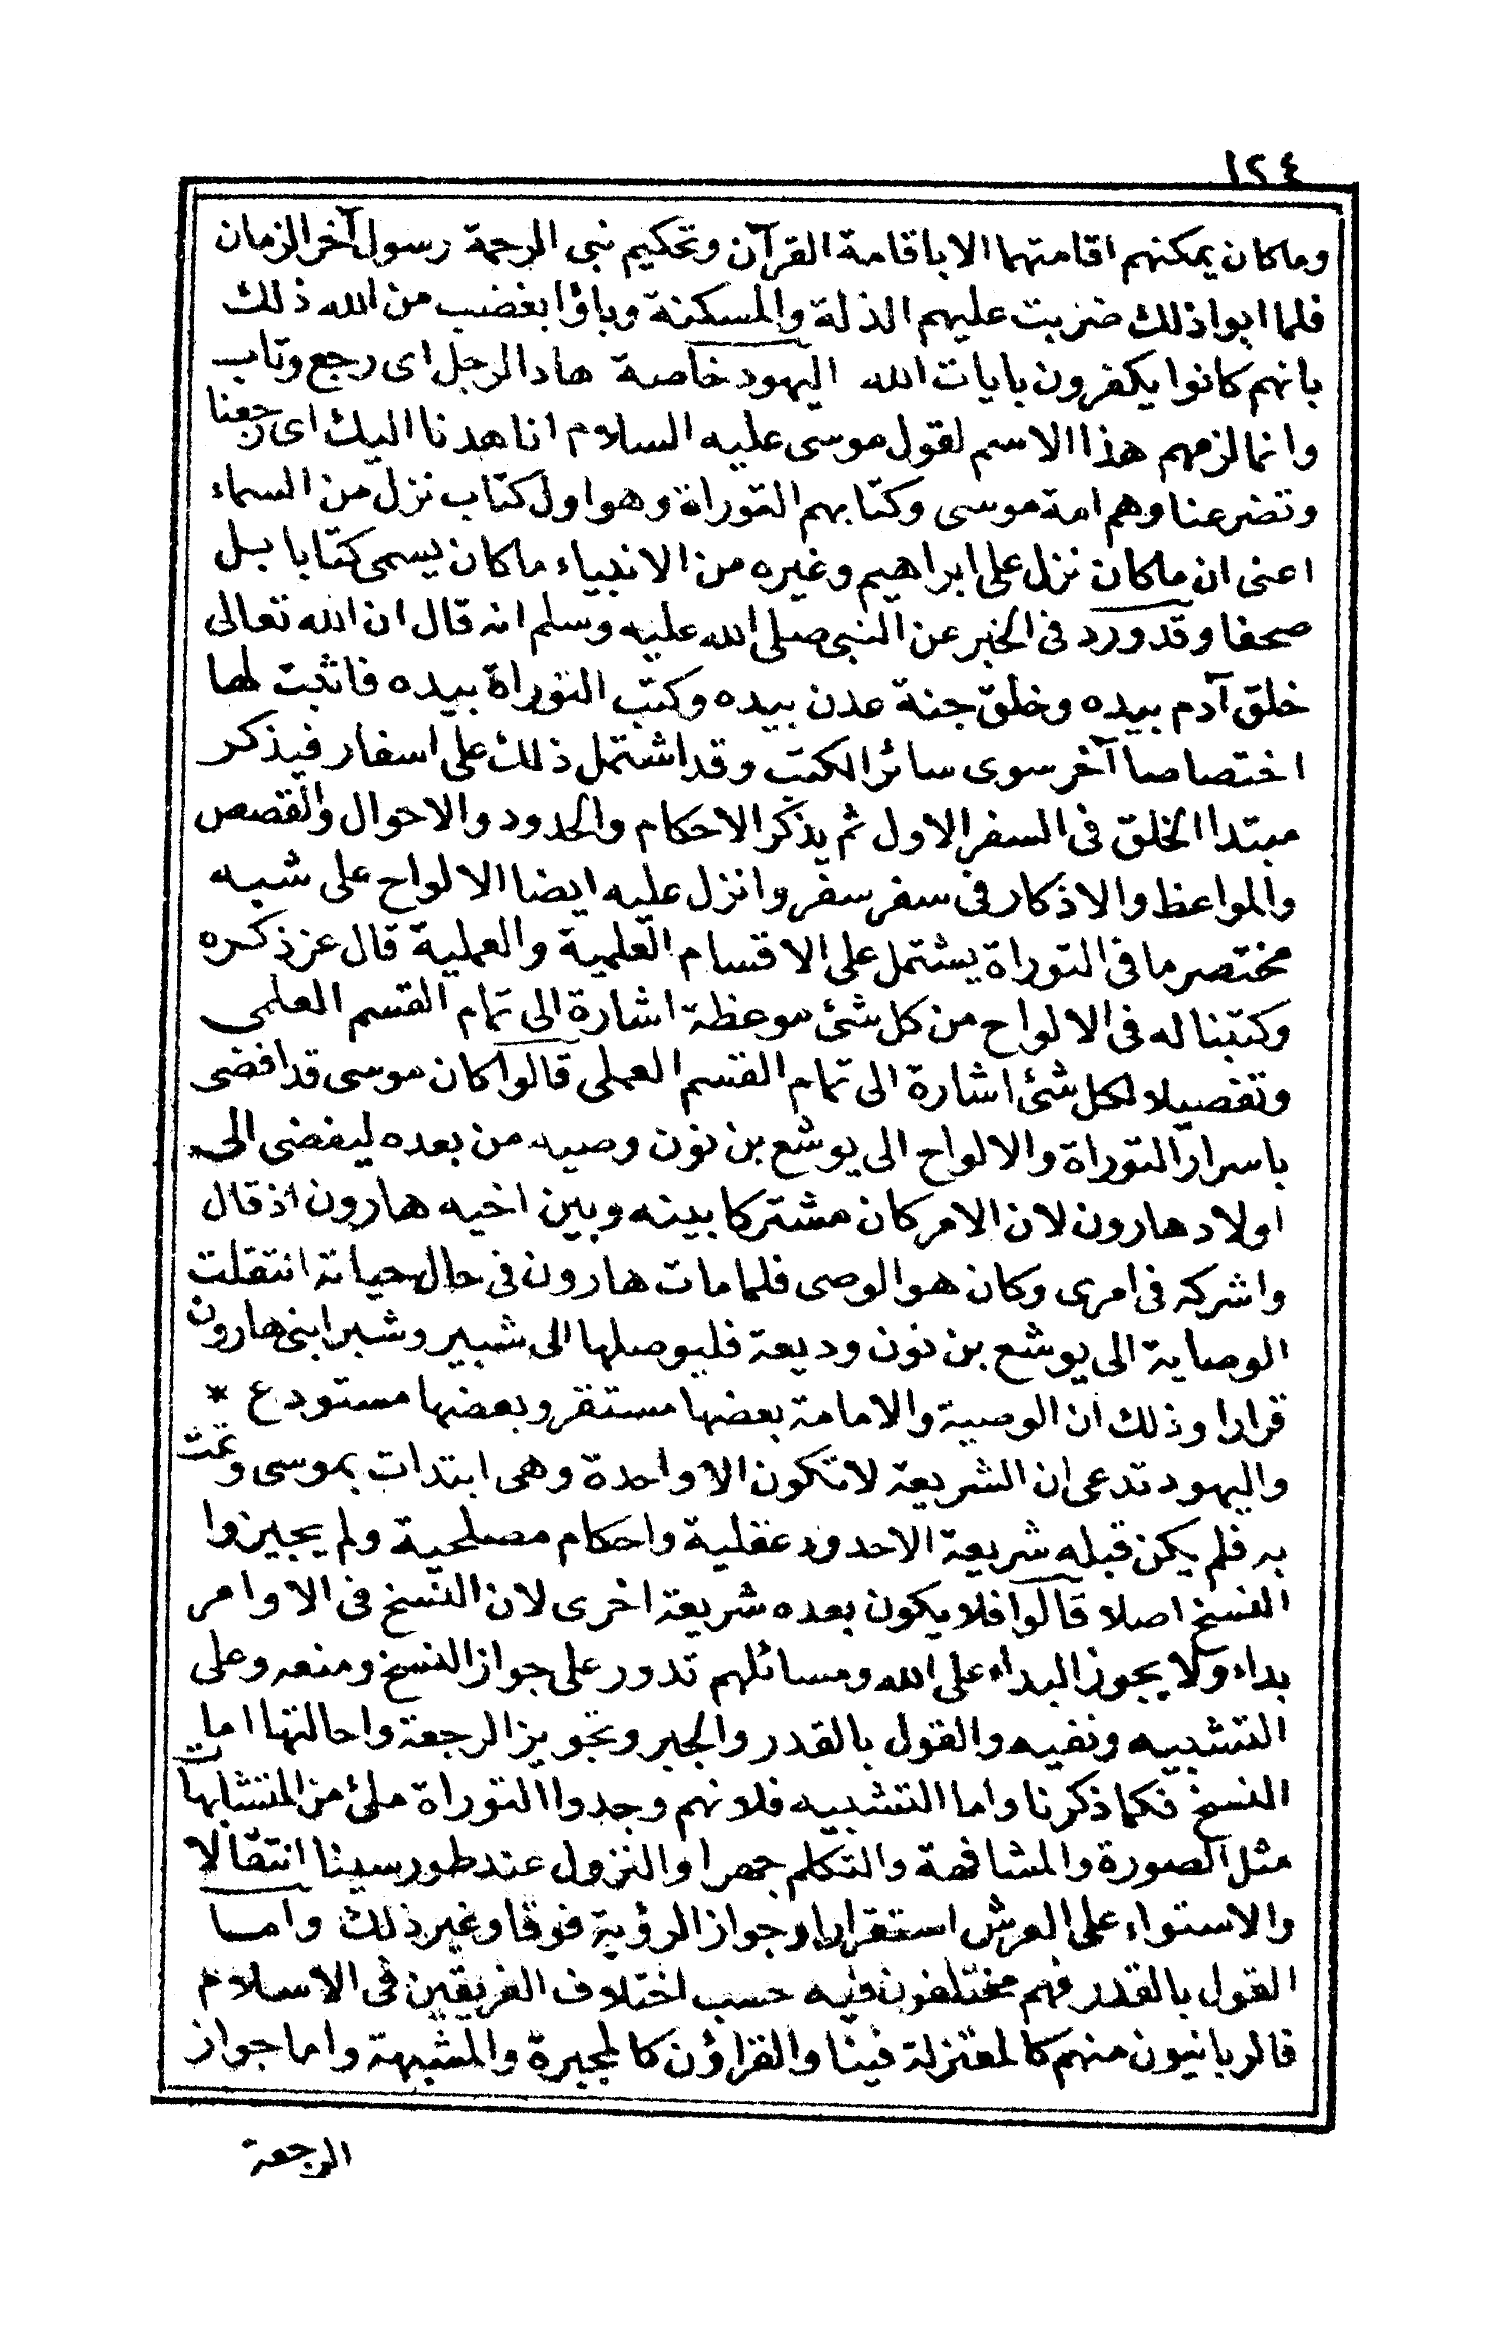 ١٢٤
وماكان يمكنهم اقامتهما الا باقامة القرآن وتحكيم نبى الرحمة رسول آخر الزمان
فلما ابوا ذلك ضربت عليهم الذلة والمسكنة وباؤا بغضب من الله ذلك
بانهم كانوا يكفرون بايات الله اليهود خاصة هاد الرجل اى رجع وتاب
وانما لزمهم هذا الاسم لقول موسى عليه السلام انا هدنا اليك اى رجعنا
وتضرعنا وهم امة موسى وكتابهم التوراة وهو اول كتاب نزل من السماء
اعنى ان ماكان نزل على ابراهيم وغيره من الانبياء ماكان يسمى كتابا بل
صحفا وقد ورد فى الخبر عن النبى صلى الله عليه وسلم انه قال ان الله تعالى
خلق آدم بيده وخلق جنة عدن بيده وكتب التوراة بيده فاثبت لها
اختصاصا آخر سوى سائر الكتب وقد اشتمل ذلك على اسفار فيذكر
مبتدا الخلق فى السفر الاول ثم يذكر الاحكام والحدود والاحوال والقصص
والمواعظ والاذكار فى سفر سفر وانزل عليه ايضا الالواح على شبه
مختصر ما فى التوراة يشتمل على الاقسام العلمية والعملية قال عز ذكره
وكتبنا له فى الالواح من كل شئ موعظة اشارة الى تمام القسم العلمي
وتفصيلا لكل شئ اشارة الى تمام القسم العملى قالوا كان موسى قد افضى
باسرار التوراة والالواح الى يوشع بن نون وصيه من بعده ليفضى الى
اولاد هارون لان الامر كان مشتركا بينه وبين اخيه هارون اذ قال
واشركه فى امرى وكان هو الوصى فلما مات هارون فى حال حياته انتقلت
الوصاية الى يوشع بن نون وديعة فليوصلها الى شبير وشبر ابنى هارون
قرارا وذلك ان الوصية والامامة بعضها مستقر وبعضها مستودع *
واليهود تدعى ان الشريعة لا تكون الا واحدة وهى ابتدات بموسى وتمت
به فلم يكن قبله شريعة الا حدود عقلية واحكام مصلحية ولم يجيزوا
النسخ اصلا قالوا فلا يكون بعده شريعة اخرى لان النسخ فى الاوامر
بداء ولا يجوز البداء على الله ومسائلهم تدور على جواز النسخ ومنعه وعلى
التشبيه ونفيه والقول بالقدر والجبر وتجويز الرجعة واحالتها اما
النسخ فكما ذكرنا واما التشبيه فلانهم وجدوا التوراة ملئ من المتشابهات
مثل الصورة والمشافهة والتكلم جهرا والنزول عند طور سينا انتقالا
والاستواء على العرش استقرارا وجواز الرؤية فوقا وغير ذلك واما
القول بالقدر فهم مختلفون فيه حسب اختلاف الفريقين فى الاسلام
فالربانيون منهم كالمعتزلة فينا والقراؤن كالمجبرة والمشبهة واما جواز
الرجعة